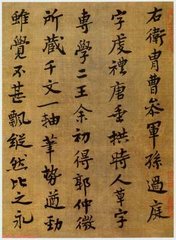 右衛胄曹參軍孫過庭
字虔禮唐垂拱時人草字
專學二王余初得郭仲微
所藏千文一抽筆勢遒勁
雖覺不甚飄縱然比之永